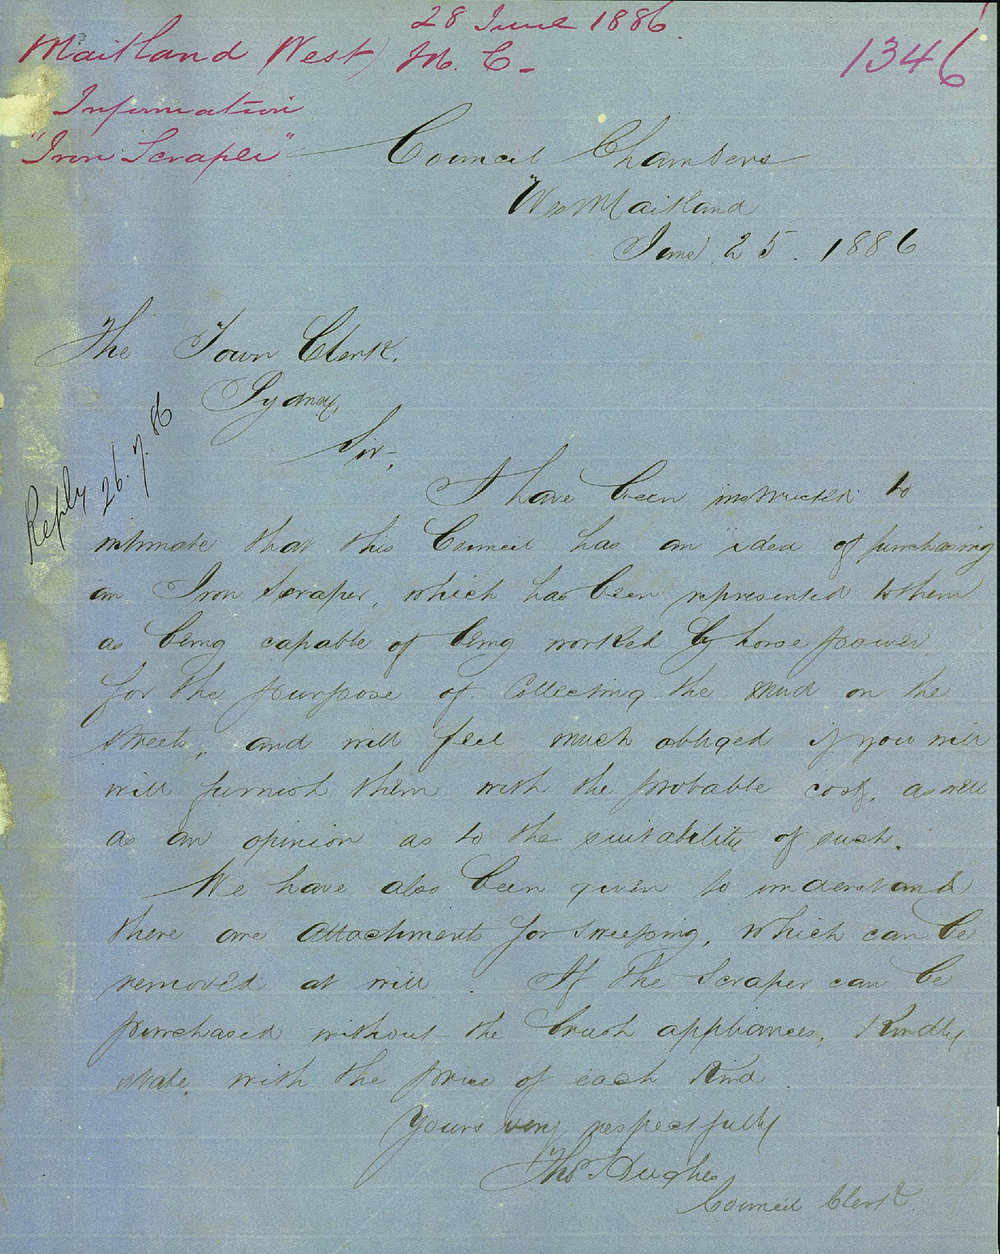 28 June 1886.
Maitland (West) M. C -
1346
Information
"Iron Scraper"
Council Chambers
West Maitland
June 25. 1886
The Town Clerk.
Sydney,
Sir,
Reply 26.7.86
I have been instructed to
intimate that this Council has an idea of purchasing
an Iron Scraper, which has been represented to them
as being capable of being worked by horse power,
for the purpose of Collecting the mud on the
streets, and will feel much obliged if you will
will furnish them with the probable cost, as well
as an opinion as to the suitability of such.
We have also been given to understand
there are attachments for sweeping, which can be
removed at will. If the Scraper can be
purchased without the brush appliances, Kindly
state, with the price of each Kind
Yours very respectfully
Thos Hughes
Council Clerk.